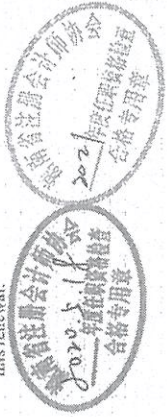 this renewal.
湖南省注册会计师协会
年度任职资格检查
合格专用章
湖南省注册会计师协会
年度任职资格检查
合格专用章